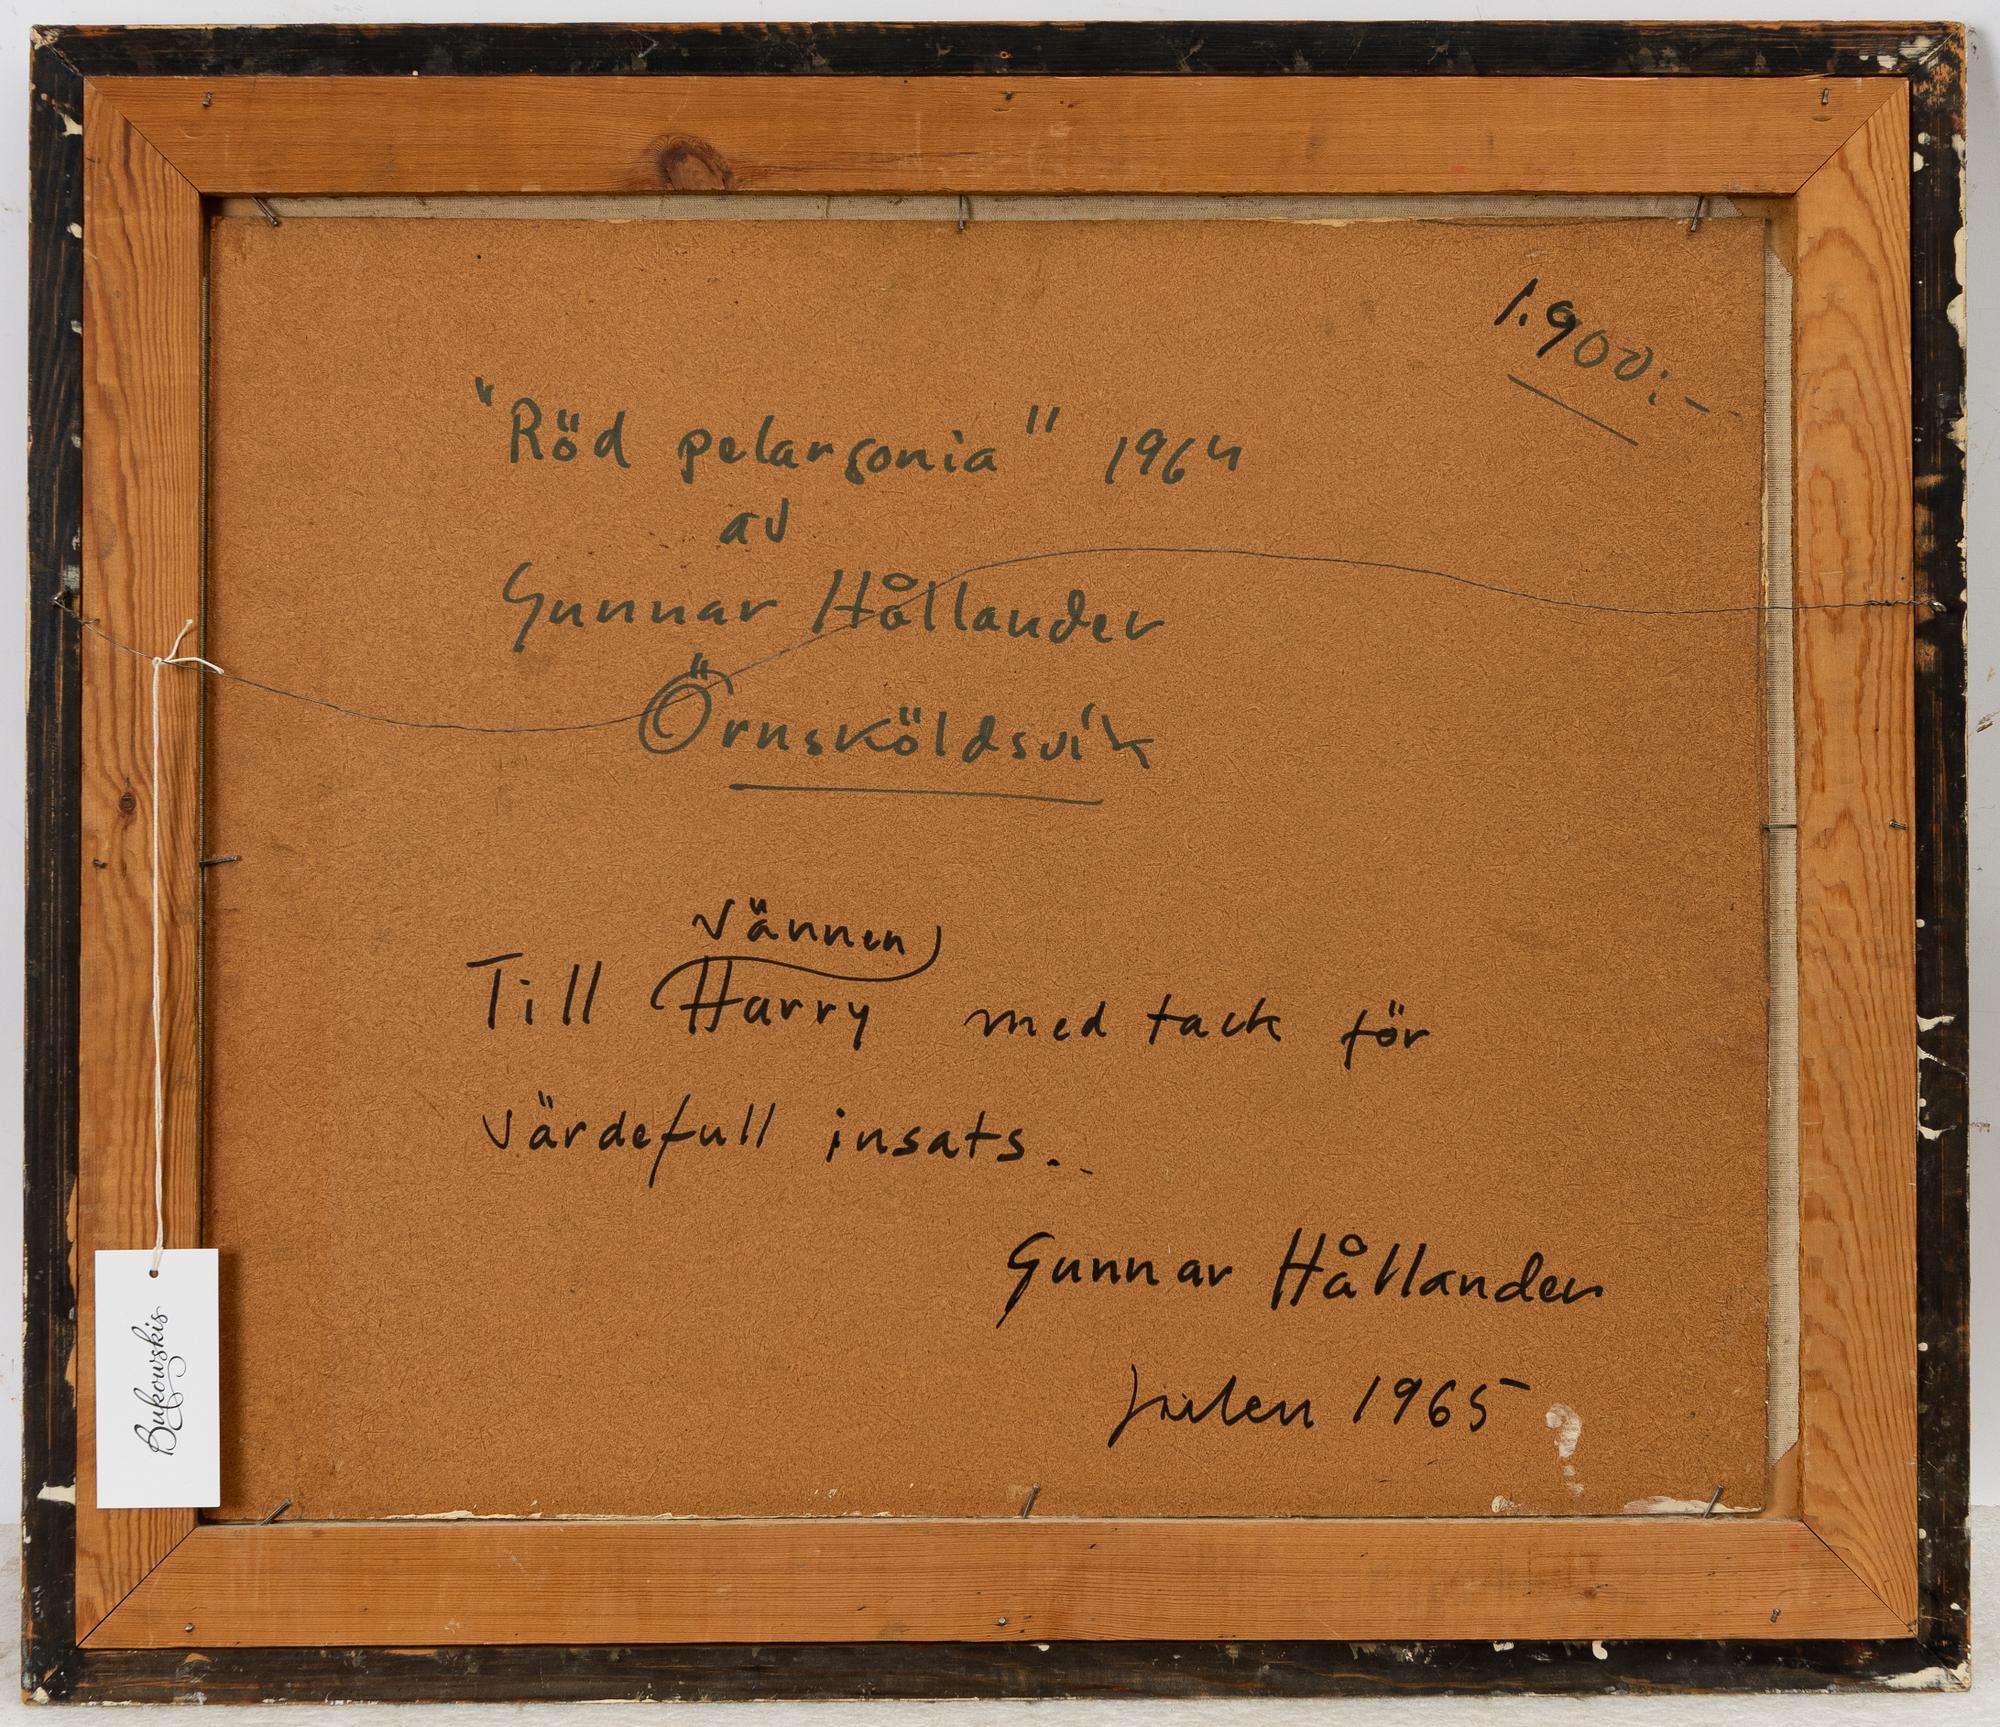 1.900:-
"Röd pelargonia" 1964
av
Gunnar Hållander
Örnsköldsvik
vännen
Till Harry med tack för
värdefull insats.
Gunnar Hållander
Julen 1965
Bukowskis